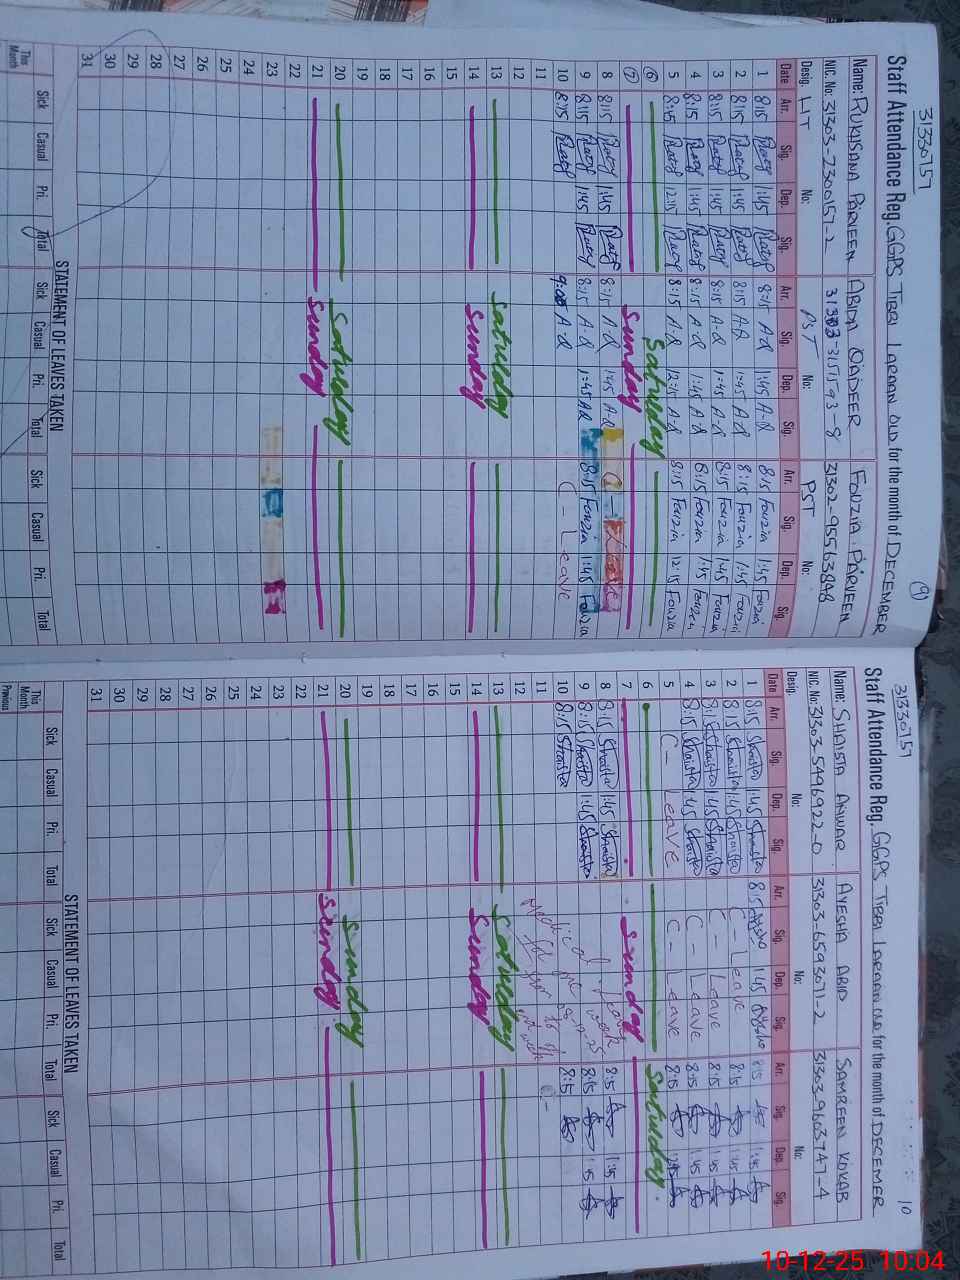 31330157
(9)
Staff Attendance Reg. GGPS TIBBI LARAAN OLD for the month of DECEMBER
Name: RUKHSANA PARVEEN ABIDA QADEER FOUZIA PARVEEN
NIC. No: 31303-7300157-2 31303-3151593-8 31302-9556384-8
Desig. HT No: PST No: PST No:
Date Arr. Sig. Dep. Sig. Arr. Sig. Dep. Sig. Arr. Sig. Dep. Sig.
1 8:15 1:45 8:15 A-Q 1:45 A-Q 8:15 Fouzia 1:45 Fouzia
2 8:15 1:45 8:15 A-Q 1:45 A-Q 8:15 Fouzia 1:45 Fouzia
3 8:15 1:45 8:15 A-Q 1:45 A-Q 8:15 Fouzia 1:45 Fouzia
4 8:15 1:45 8:15 A-Q 1:45 A-Q 8:15 Fouzia 1:45 Fouzia
5 8:15 12:15 8:15 A-Q 12:15 A-Q 8:15 Fouzia 12:15 Fouzia
6 Satureday
7 Sunday
8 8:15 1:45 8:15 A-Q 1:45 A-Q C - Leave
9 8:15 1:45 8:15 A-Q 1:45 A-Q 8:15 Fouzia 1:45 Fouzia
10 8:15 9:00 A-Q C - Leave
11
12
13 Satureday
14 Sunday
15
16
17
18
19
20 Satureday
21 Sunday
22
23
24
25
26
27
28
29
30
31
STATEMENT OF LEAVES TAKEN
Sick Casual Pri. Total Sick Casual Pri. Total Sick Casual Pri. Total
This Month
31330157
10
Staff Attendance Reg. GGPS TIBBI LARAAN OLD for the month of DECEMER
Name: SHAISTA ANWAR AYESHA ABID SAMREEN KOKAB
NIC. No: 31303-5496922-0 31303-6593071-2 31303-9603747-4
Desig. No: No: No:
Date Arr. Sig. Dep. Sig. Arr. Sig. Dep. Sig. Arr. Sig. Dep. Sig.
1 8:15 Shaista 1:45 Shaista 8:15 Aysha 1:45 Aysha 8:15 1:45
2 8:15 Shaista 1:45 Shaista C - Leave 8:15 1:45
3 8:15 Shaista 1:45 Shaista C - Leave 8:15 1:45
4 8:15 Shaista 1:45 Shaista C - Leave 8:15 1:45
5 C - Leave C - Leave 8:15
6 Satureday
7 Sunday
8 8:15 Shaista 1:45 Shaista 8:15 1:45
9 8:15 Shaista 1:45 Shaista 8:15 1:45
10 8:15 Shaista 8:15
11
12
13 Satureday
14 Sunday
15
16
17
18
19
20 Sunday
21 Sunday
22
23
24
25
26
27
28
29
30
31
STATEMENT OF LEAVES TAKEN
Sick Casual Pri. Total Sick Casual Pri. Total Sick Casual Pri. Total
This Month
Previous
10-12-25 10:04